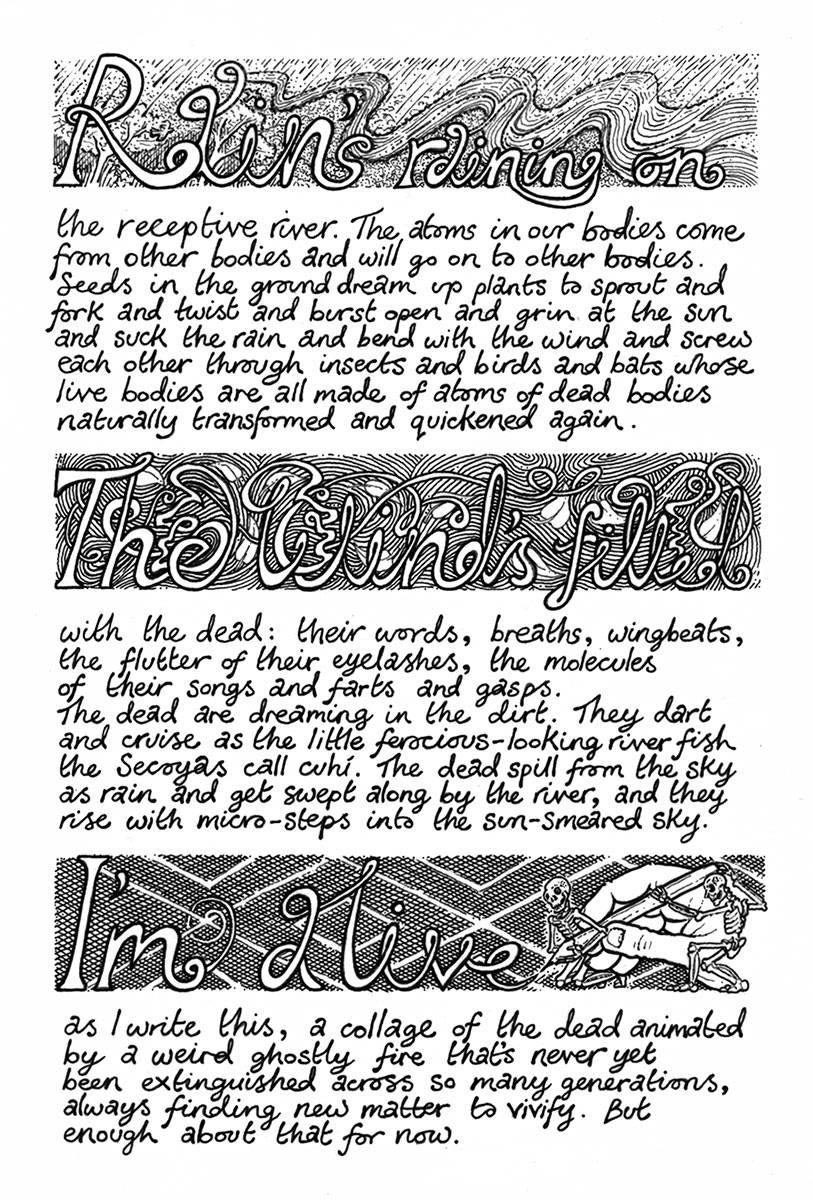 Rain's raining on
the receptive river. The atoms in our bodies come
from other bodies and will go on to other bodies.
Seeds in the ground dream up plants to sprout and
fork and twist and burst open and grin at the sun
and suck the rain and bend with the wind and screw
each other through insects and birds and bats whose
live bodies are all made of atoms of dead bodies
naturally transformed and quickened again.
The Wind's filled
with the dead: their words, breaths, wingbeats,
the flutter of their eyelashes, the molecules
of their songs and farts and gasps.
The dead are dreaming in the dirt. They dart
and cruise as the little ferocious-looking river fish
the Secoyas call cuhí. The dead spill from the sky
as rain and get swept along by the river, and they
rise with micro-steps into the sun-smeared sky.
I'm alive
as I write this, a collage of the dead animated
by a weird ghostly fire that's never yet
been extinguished across so many generations,
always finding new matter to vivify. But
enough about that for now.